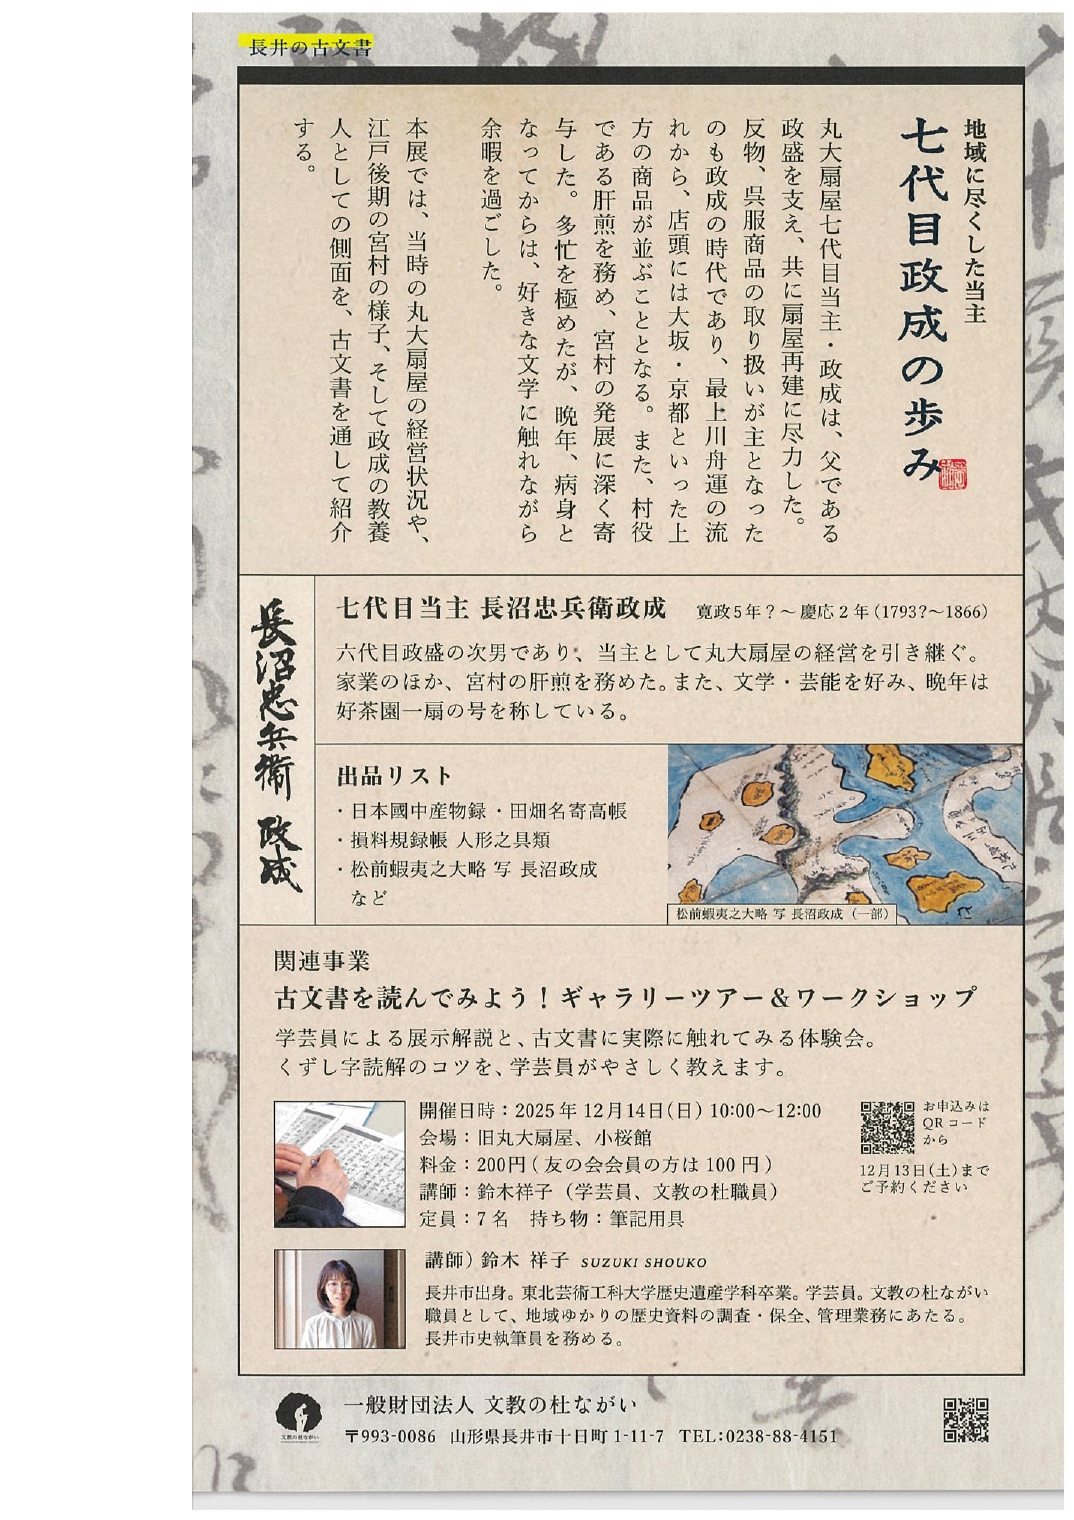 長井の古文書
地域に尽くした当主
七代目政成の歩み
丸大扇屋七代目当主・政成は、父である
政盛を支え、共に扇屋再建に尽力した。
反物、呉服商品の取り扱いが主となった
のも政成の時代であり、最上川舟運の流
れから、店頭には大坂・京都といった上
方の商品が並ぶこととなる。また、村役
である肝煎を務め、宮村の発展に深く寄
与した。多忙を極めたが、晩年、病身と
なってからは、好きな文学に触れながら
余暇を過ごした。
本展では、当時の丸大扇屋の経営状況や、
江戸後期の宮村の様子、そして政成の教養
人としての側面を、古文書を通して紹介
する。
長沼忠兵衛 政成
七代目当主 長沼忠兵衛政成 寛政5年?〜慶応2年(1793?〜1866)
六代目政盛の次男であり、当主として丸大扇屋の経営を引き継ぐ。
家業のほか、宮村の肝煎を務めた。また、文学・芸能を好み、晩年は
好茶園一扇の号を称している。
出品リスト
・日本國中産物録 ・田畑名寄高帳
・損料規録帳 人形之具類
・松前蝦夷之大略 写 長沼政成
など
松前蝦夷之大略 写 長沼政成(一部)
関連事業
古文書を読んでみよう!ギャラリーツアー&ワークショップ
学芸員による展示解説と、古文書に実際に触れてみる体験会。
くずし字読解のコツを、学芸員がやさしく教えます。
開催日時:2025年12月14日(日) 10:00〜12:00
会場:旧丸大扇屋、小桜館
料金:200円(友の会会員の方は100円)
講師:鈴木祥子(学芸員、文教の杜職員)
定員:7名 持ち物:筆記用具
お申込みは
QRコード
から
12月13日(土)まで
ご予約ください
講師)鈴木 祥子 SUZUKI SHOUKO
長井市出身。東北芸術工科大学歴史遺産学科卒業。学芸員。文教の杜ながい
職員として、地域ゆかりの歴史資料の調査・保全、管理業務にあたる。
長井市史執筆員を務める。
文教の杜ながい
一般財団法人 文教の杜ながい
〒993-0086 山形県長井市十日町1-11-7 TEL:0238-88-4151